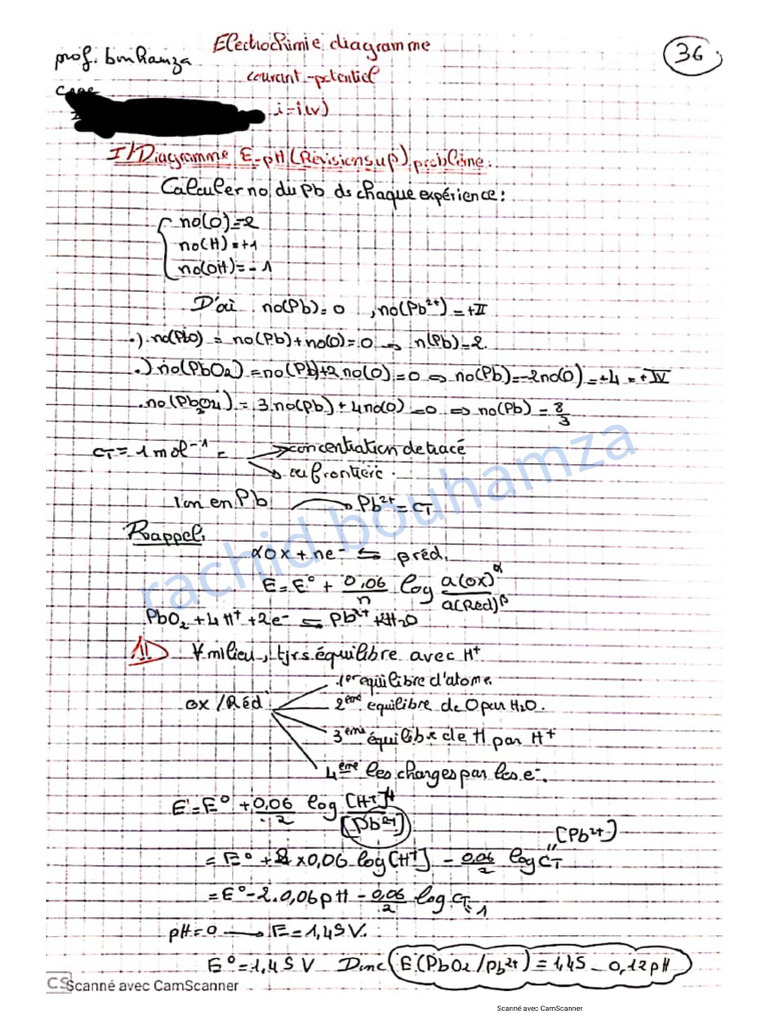 Electrochimie diagramme
36
prof. bouhamza
courant-potentiel
i-i(v)
I/Diagramme E-pH (Révision sup) problème.
Calculer no du Pb ds chaque expérience:
no(O)=-2
no(H)=+1
no(OH)=-1
D'où no(Pb)=0, no(Pb²⁺)=+II
.) no(PbO) = no(Pb)+no(O)=0 ⇒ n(Pb)=2.
.) no(PbO₂)=no(Pb)+2no(O)=0 ⇔ no(Pb)=-2no(O)=+4=+IV
.no(Pb₃O₄)= 3.no(Pb)+4no(O)=0 ⇔ no(Pb)=8/3
CT=1mol⁻¹=
concentration de tracé
ou frontière.
1 on en Pb → Pb²⁺=CT
rachid bouhamza
Rappel:
αOx+ne⁻ ⇆ βréd.
E=E°+ 0,06/n log a(Ox)^α/a(Red)^β
PbO₂+4H⁺+2e⁻ ⇆ Pb²⁺+2H₂O
!! ∀milieu, tjrs équilibre avec H⁺
1er equilibre d'atome
ox/Réd
2ème equilibre de O par H₂O.
3ème équilibre de H par H⁺
4ème les charges par les e⁻.
E=E°+0,06/2 log [H⁺]⁴/[Pb²⁺]
[Pb²⁺]
=E°+2×0,06log[H⁺] - 0,06/2 log CT
=E°-2.0,06pH-0,06/2 log CT=1
pH=0 → E=1,45V.
E°=1,45V Donc E(PbO₂/Pb²⁺)=1,45-0,12pH
CS Scanné avec CamScanner
Scanné avec CamScanner